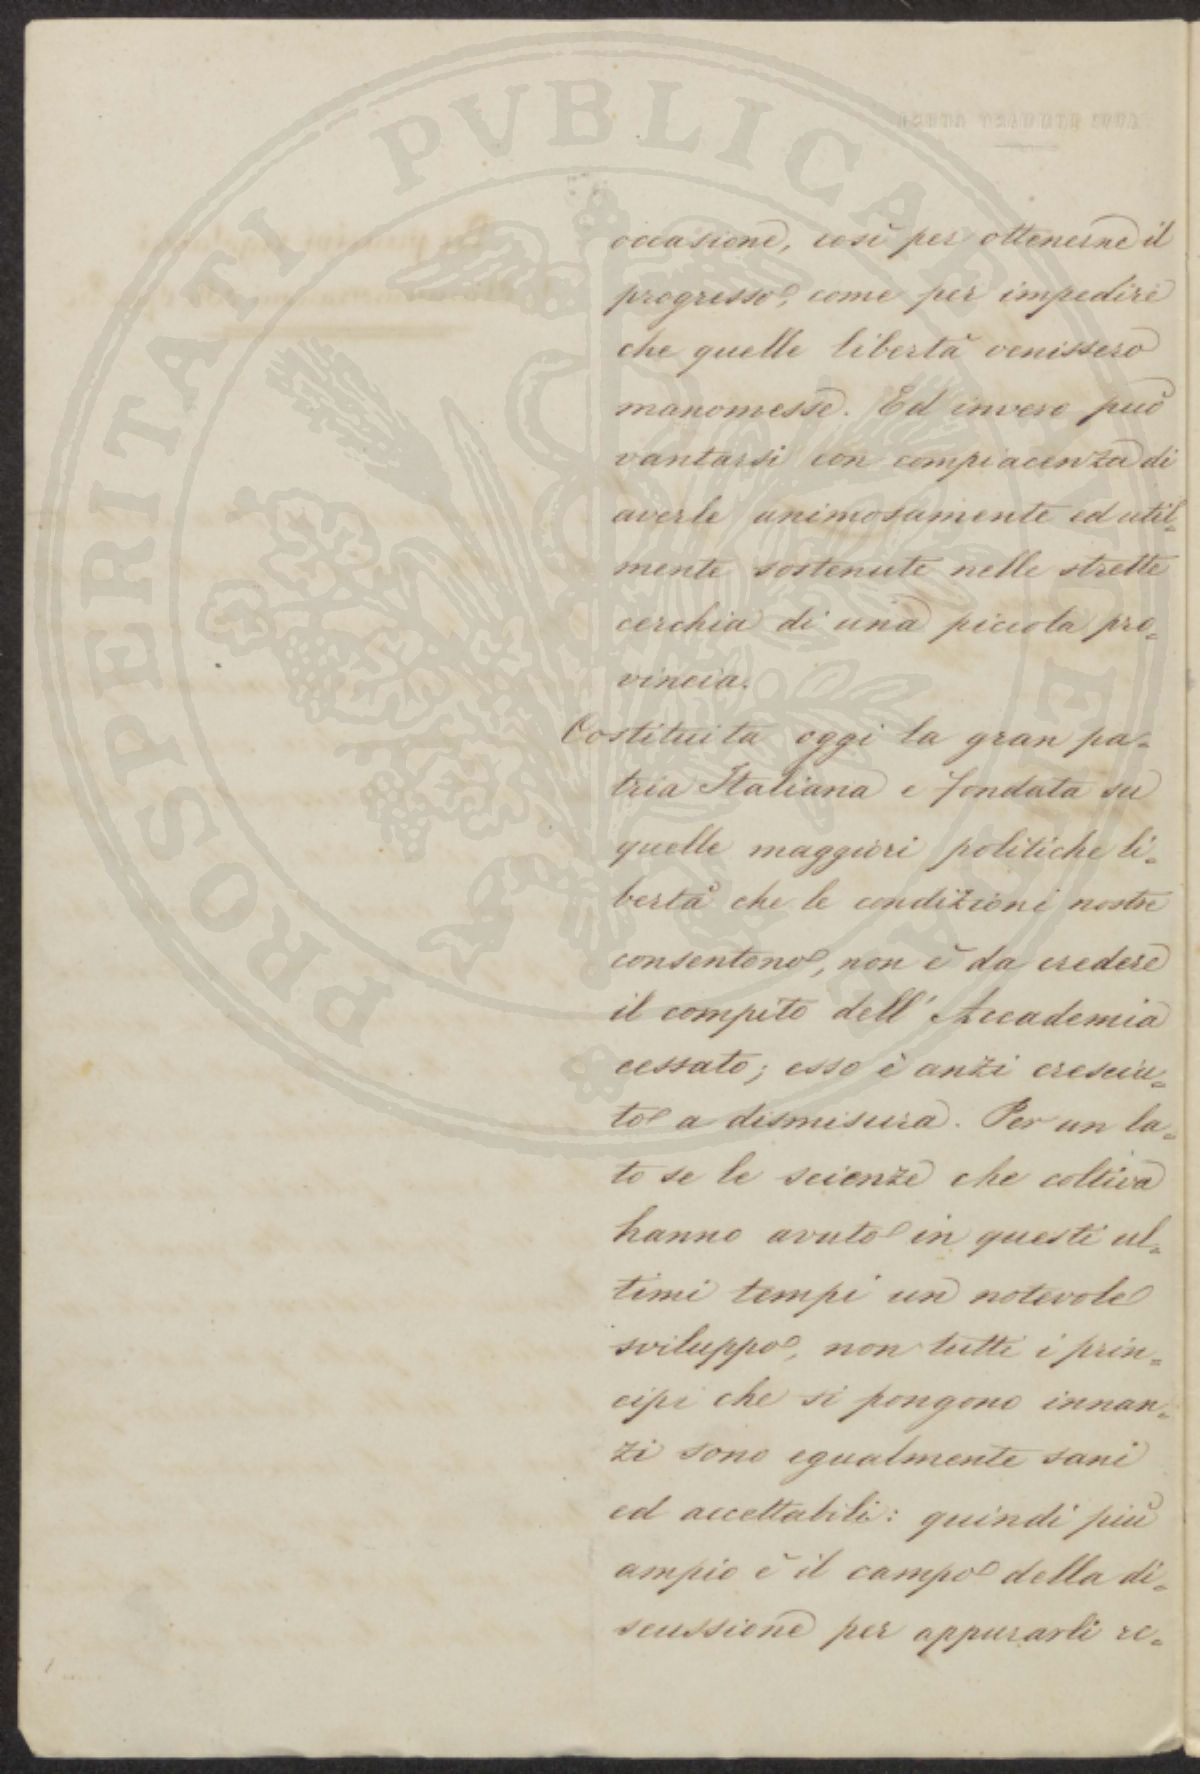 PROSPERITATI PVBLICAE AVGENDAE
occasione, così per ottenerne il
progresso, come per impedire
che quelle libertà venissero
manomesse. Ed invero può
vantarsi con compiacenza di
averle animosamente ed util=
mente sostenute nelle strette
cerchia di una piccola pro=
vincia.
Costituita oggi la gran pa=
tria Italiana e fondata su
quelle maggiori politiche li=
bertà che le condizioni nostre
consentono, non è da credere
il compito dell' Accademia
cessato; esso è anzi cresciu=
to a dismisura. Per un la=
to se le scienze che coltiva
hanno avuto in questi ul=
timi tempi un notevole
sviluppo, non tutti i prin=
cipi che si pongono innan=
zi sono egualmente sani
ed accettabili: quindi più
ampio è il campo della di=
scussione per appurarli re=